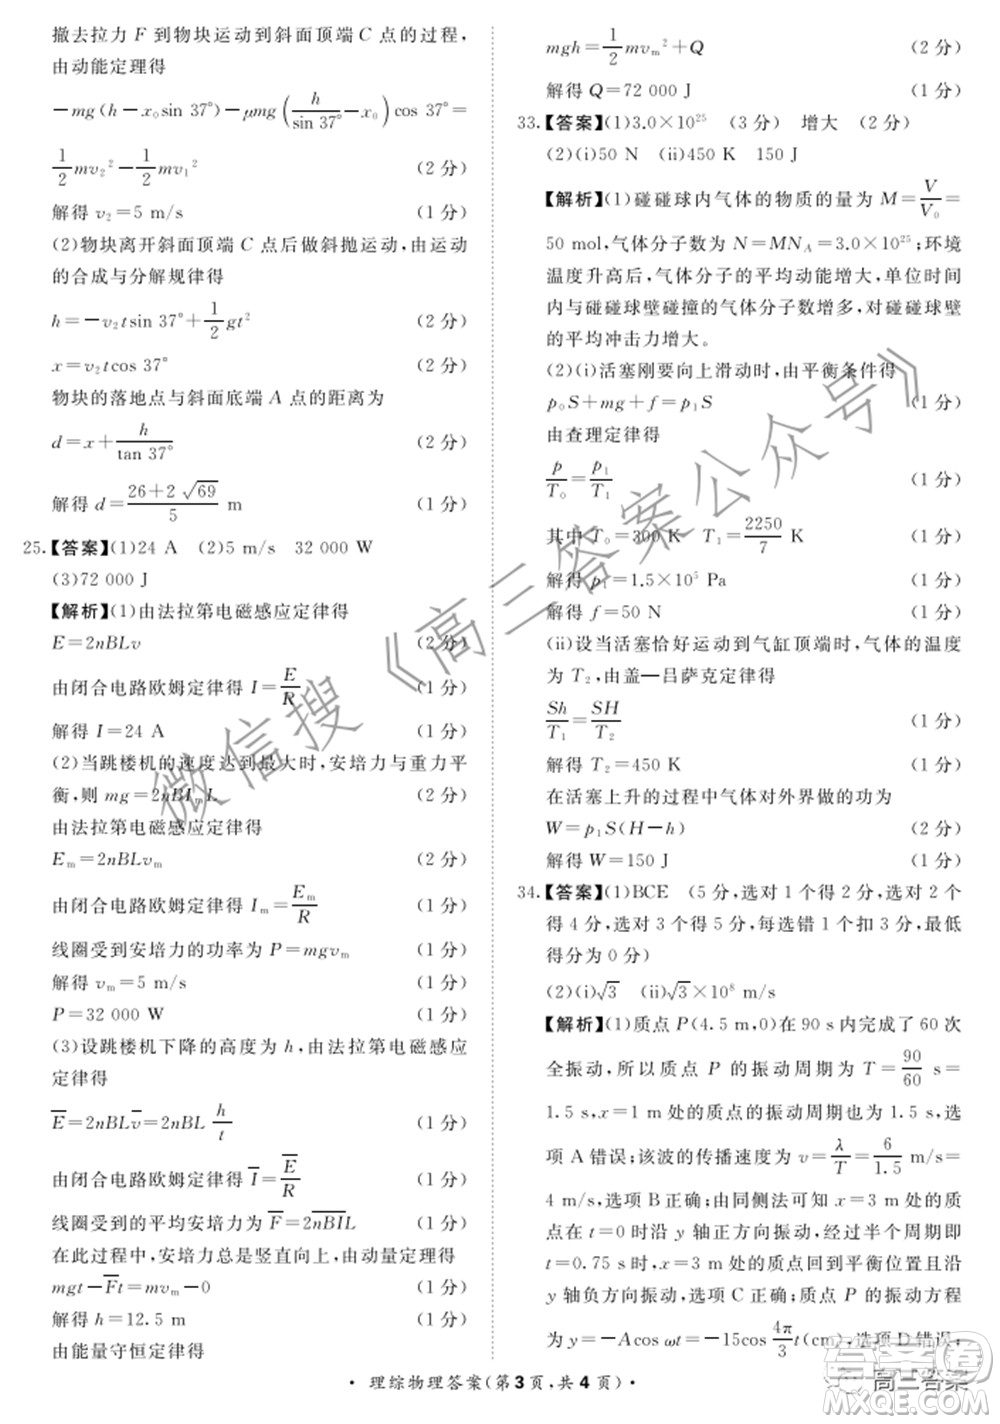 撤去拉力 F 到物块运动到斜面顶端 C 点的过程，
由动能定理得
−mg(h−x₀sin 37°)−μmg(h/sin 37°−x₀)cos 37°=
1/2mv₂²−1/2mv₁² (2 分)
解得 v₂=5 m/s (1 分)
(2)物块离开斜面顶端 C 点后做斜抛运动，由运动
的合成与分解规律得
h=−v₂tsin 37°+1/2gt² (2 分)
x=v₂tcos 37° (2 分)
物块的落地点与斜面底端 A 点的距离为
d=x+h/tan 37° (2 分)
解得 d=(26+2√69)/5 m (1 分)
25.【答案】(1)24 A (2)5 m/s 32 000 W
(3)72 000 J
【解析】(1)由法拉第电磁感应定律得
E=2nBLv (2 分)
由闭合电路欧姆定律得 I=E/R (1 分)
解得 I=24 A (1 分)
(2)当跳楼机的速度达到最大时，安培力与重力平
衡，则 mg=2nBIₘL (2 分)
由法拉第电磁感应定律得
Eₘ=2nBLvₘ (2 分)
由闭合电路欧姆定律得 Iₘ=Eₘ/R (1 分)
线圈受到安培力的功率为 P=mgvₘ (1 分)
解得 vₘ=5 m/s (1 分)
P=32 000 W (1 分)
(3)设跳楼机下降的高度为 h，由法拉第电磁感应
定律得
E̅=2nBLv̅=2nBL h/t (1 分)
由闭合电路欧姆定律得 I̅=E̅/R (1 分)
线圈受到的平均安培力为 F̅=2nBI̅L (1 分)
在此过程中，安培力总是竖直向上，由动量定理得
mgt−F̅t=mvₘ−0 (1 分)
解得 h=12.5 m (1 分)
由能量守恒定律得
mgh=1/2mvₘ²+Q (2 分)
解得 Q=72 000 J (1 分)
33.【答案】(1)3.0×10²⁵ (3 分) 增大 (2 分)
(2)(i)50 N (ii)450 K 150 J
【解析】(1)碰碰球内气体的物质的量为 M=V/V₀=
50 mol，气体分子数为 N=MN_A=3.0×10²⁵；环境
温度升高后，气体分子的平均动能增大，单位时间
内与碰碰球壁碰撞的气体分子数增多，对碰碰球壁
的平均冲击力增大。
(2)(i)活塞刚要向上滑动时，由平衡条件得
p₀S+mg+f=p₁S (1 分)
由查理定律得
p/T₀=p₁/T₁ (1 分)
其中 T₀=300 K T₁=2250/7 K
解得 p₁=1.5×10⁵ Pa (1 分)
解得 f=50 N (1 分)
(ii)设当活塞恰好运动到气缸顶端时，气体的温度
为 T₂，由盖—吕萨克定律得
Sh/T₁=SH/T₂ (1 分)
解得 T₂=450 K (1 分)
在活塞上升的过程中气体对外界做的功为
W=p₁S(H−h) (2 分)
解得 W=150 J (1 分)
34.【答案】(1)BCE (5 分，选对 1 个得 2 分，选对 2 个
得 4 分，选对 3 个得 5 分，每选错 1 个扣 3 分，最低
得分为 0 分)
(2)(i)√3 (ii)√3×10⁸ m/s
【解析】(1)质点 P(4.5 m,0)在 90 s 内完成了 60 次
全振动，所以质点 P 的振动周期为 T=90/60 s=
1.5 s，x=1 m 处的质点的振动周期也为 1.5 s，选
项 A 错误；该波的传播速度为 v=λ/T=6/1.5 m/s=
4 m/s，选项 B 正确；由同侧法可知 x=3 m 处的质
点在 t=0 时沿 y 轴正方向振动，经过半个周期即
t=0.75 s 时，x=3 m 处的质点回到平衡位置且沿
y 轴负方向振动，选项 C 正确；质点 P 的振动方程
为 y=−Acos ωt=−15cos 4π/3 t(cm)，选项 D 错误；
• 理综物理答案(第 3 页，共 4 页) •
微信搜《高三答案公众号》
高三答案
答案圈
MXQE.COM